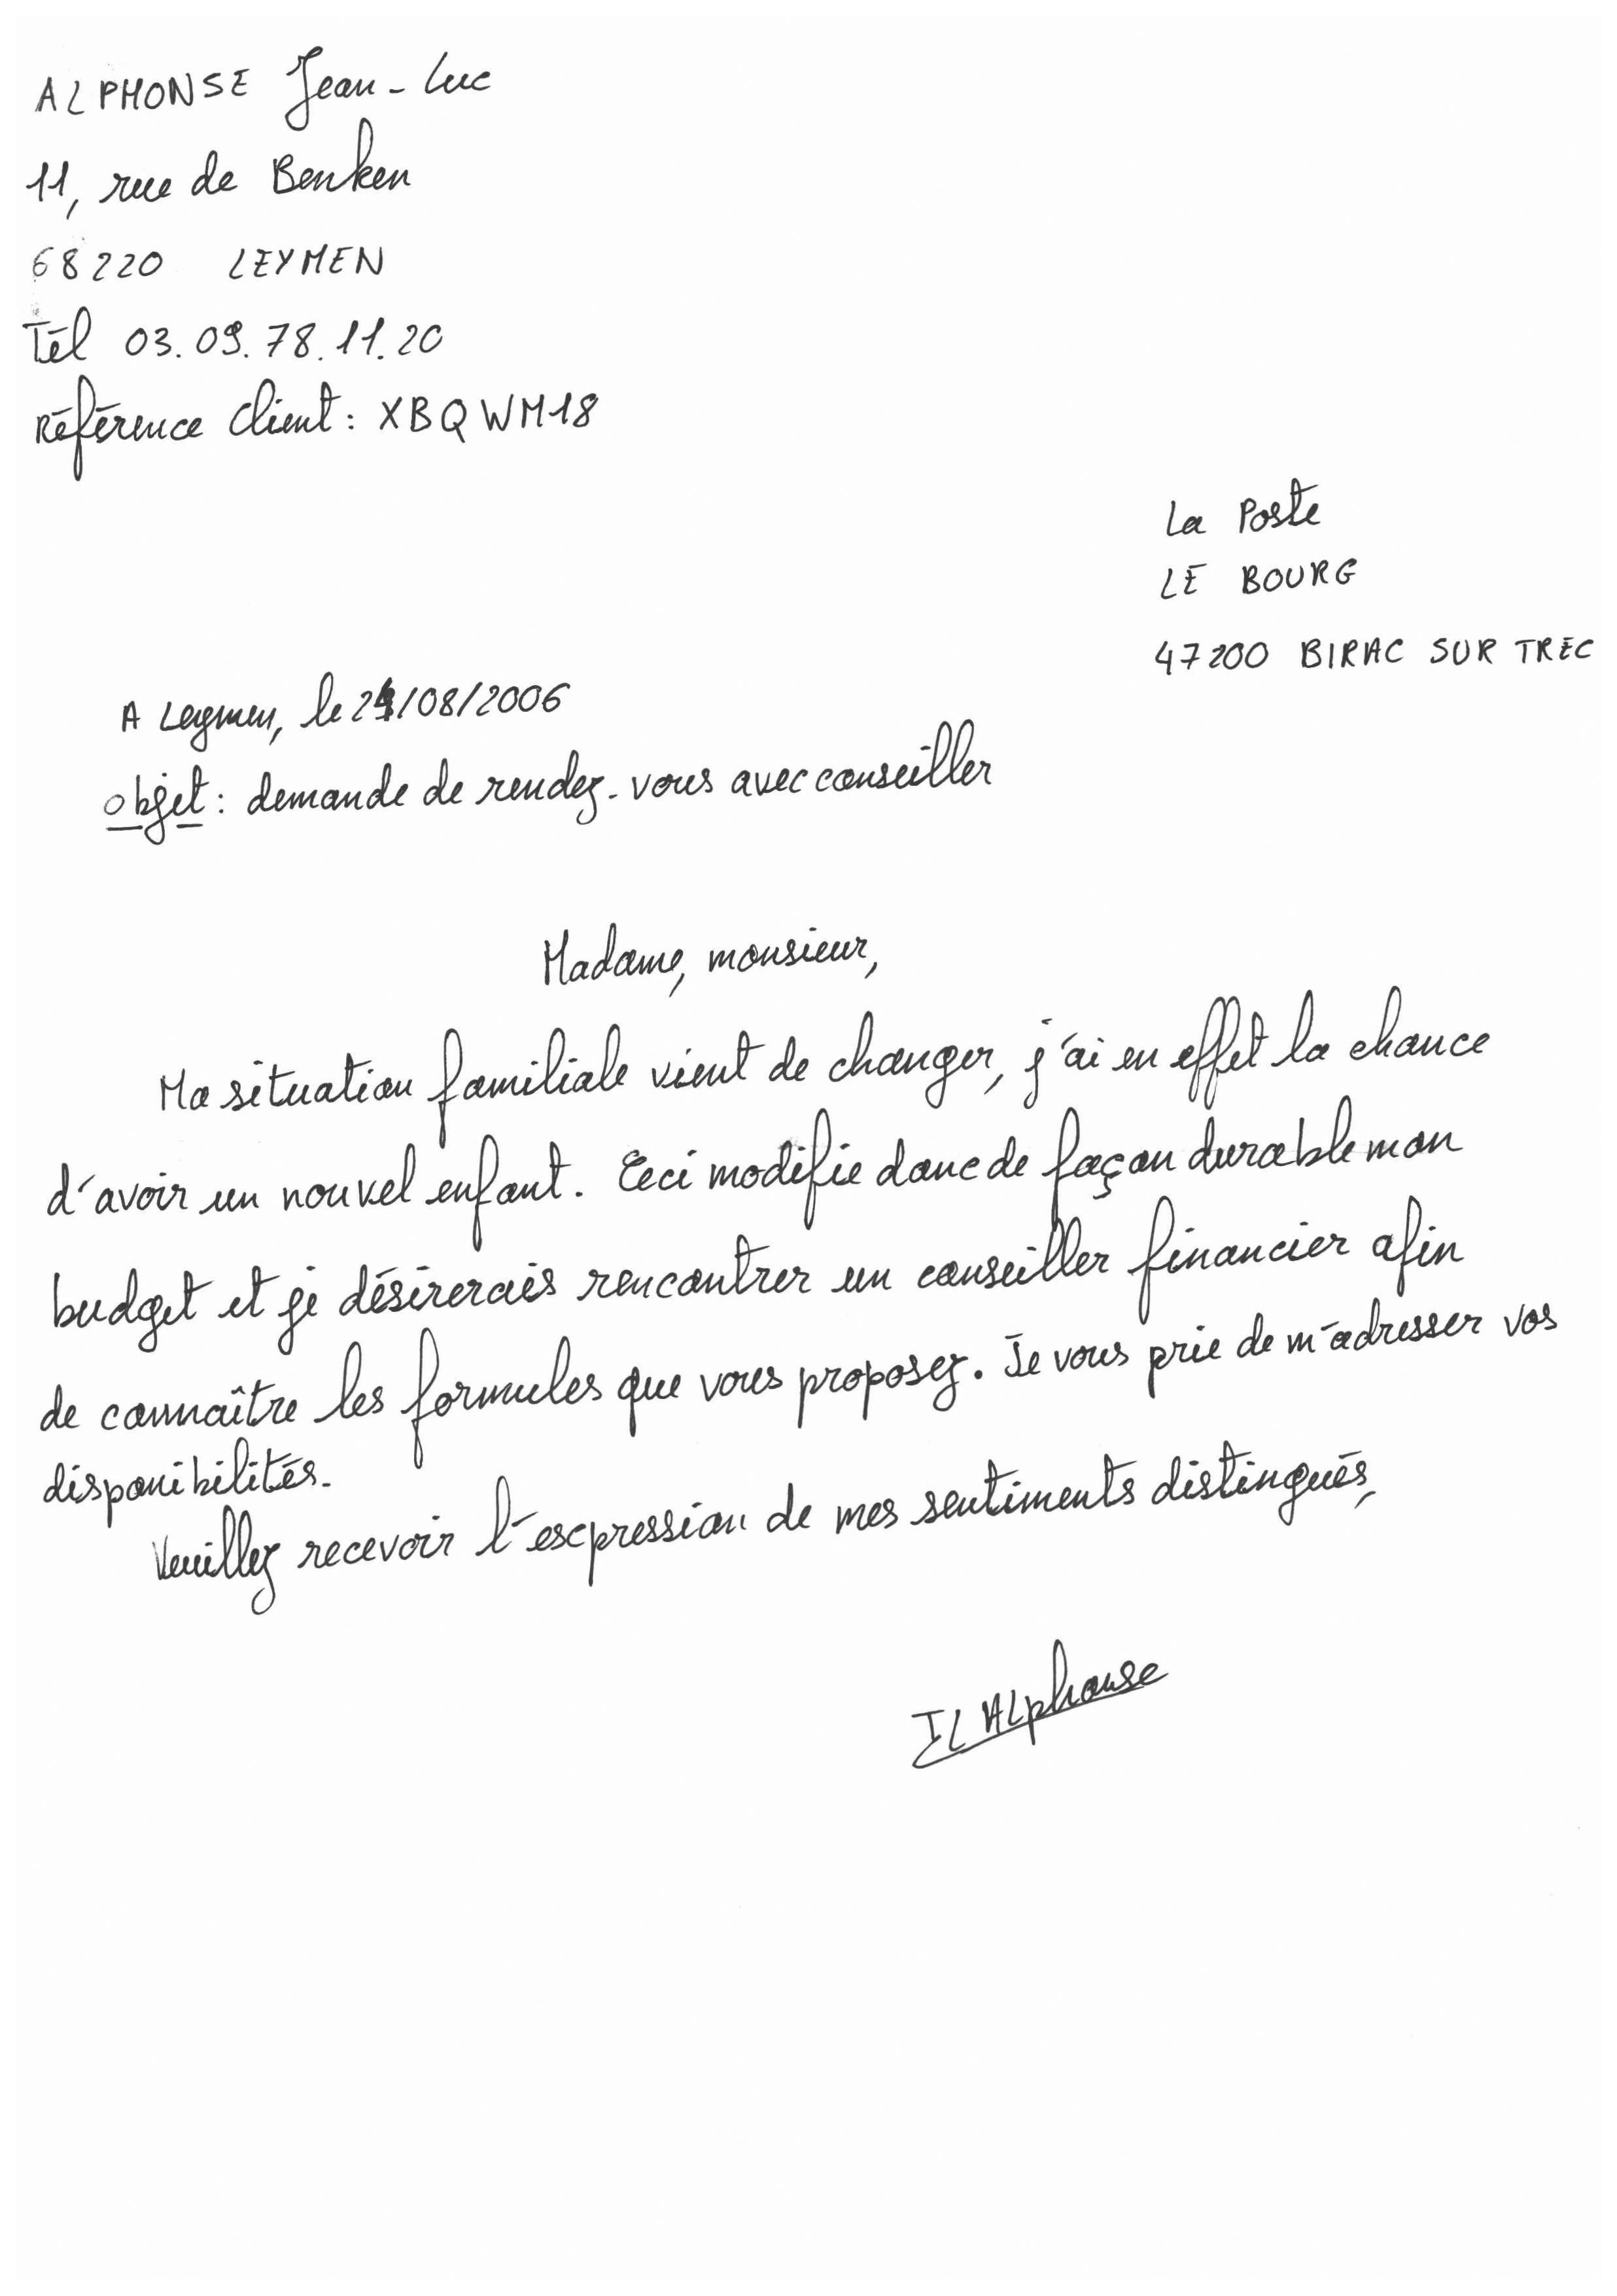 ALPHONSE Jean-Luc
11, rue de Benken
68220 LEYMEN
Tél 03.09.78.11.20
Référence client : XBQWM18
La Poste
LE BOURG
47200 BIRAC SUR TREC
A Leymen, le 24/08/2006
objet : demande de rendez-vous avec conseiller
Madame, monsieur,
Ma situation familiale vient de changer, j'ai en effet la chance
d'avoir un nouvel enfant. Ceci modifie donc de façon durable mon
budget et je désirerais rencontrer un conseiller financier afin
de connaître les formules que vous proposez. Je vous prie de m'adresser vos
disponibilités.
Veuillez recevoir l'expression de mes sentiments distingués,
JL ALphonse